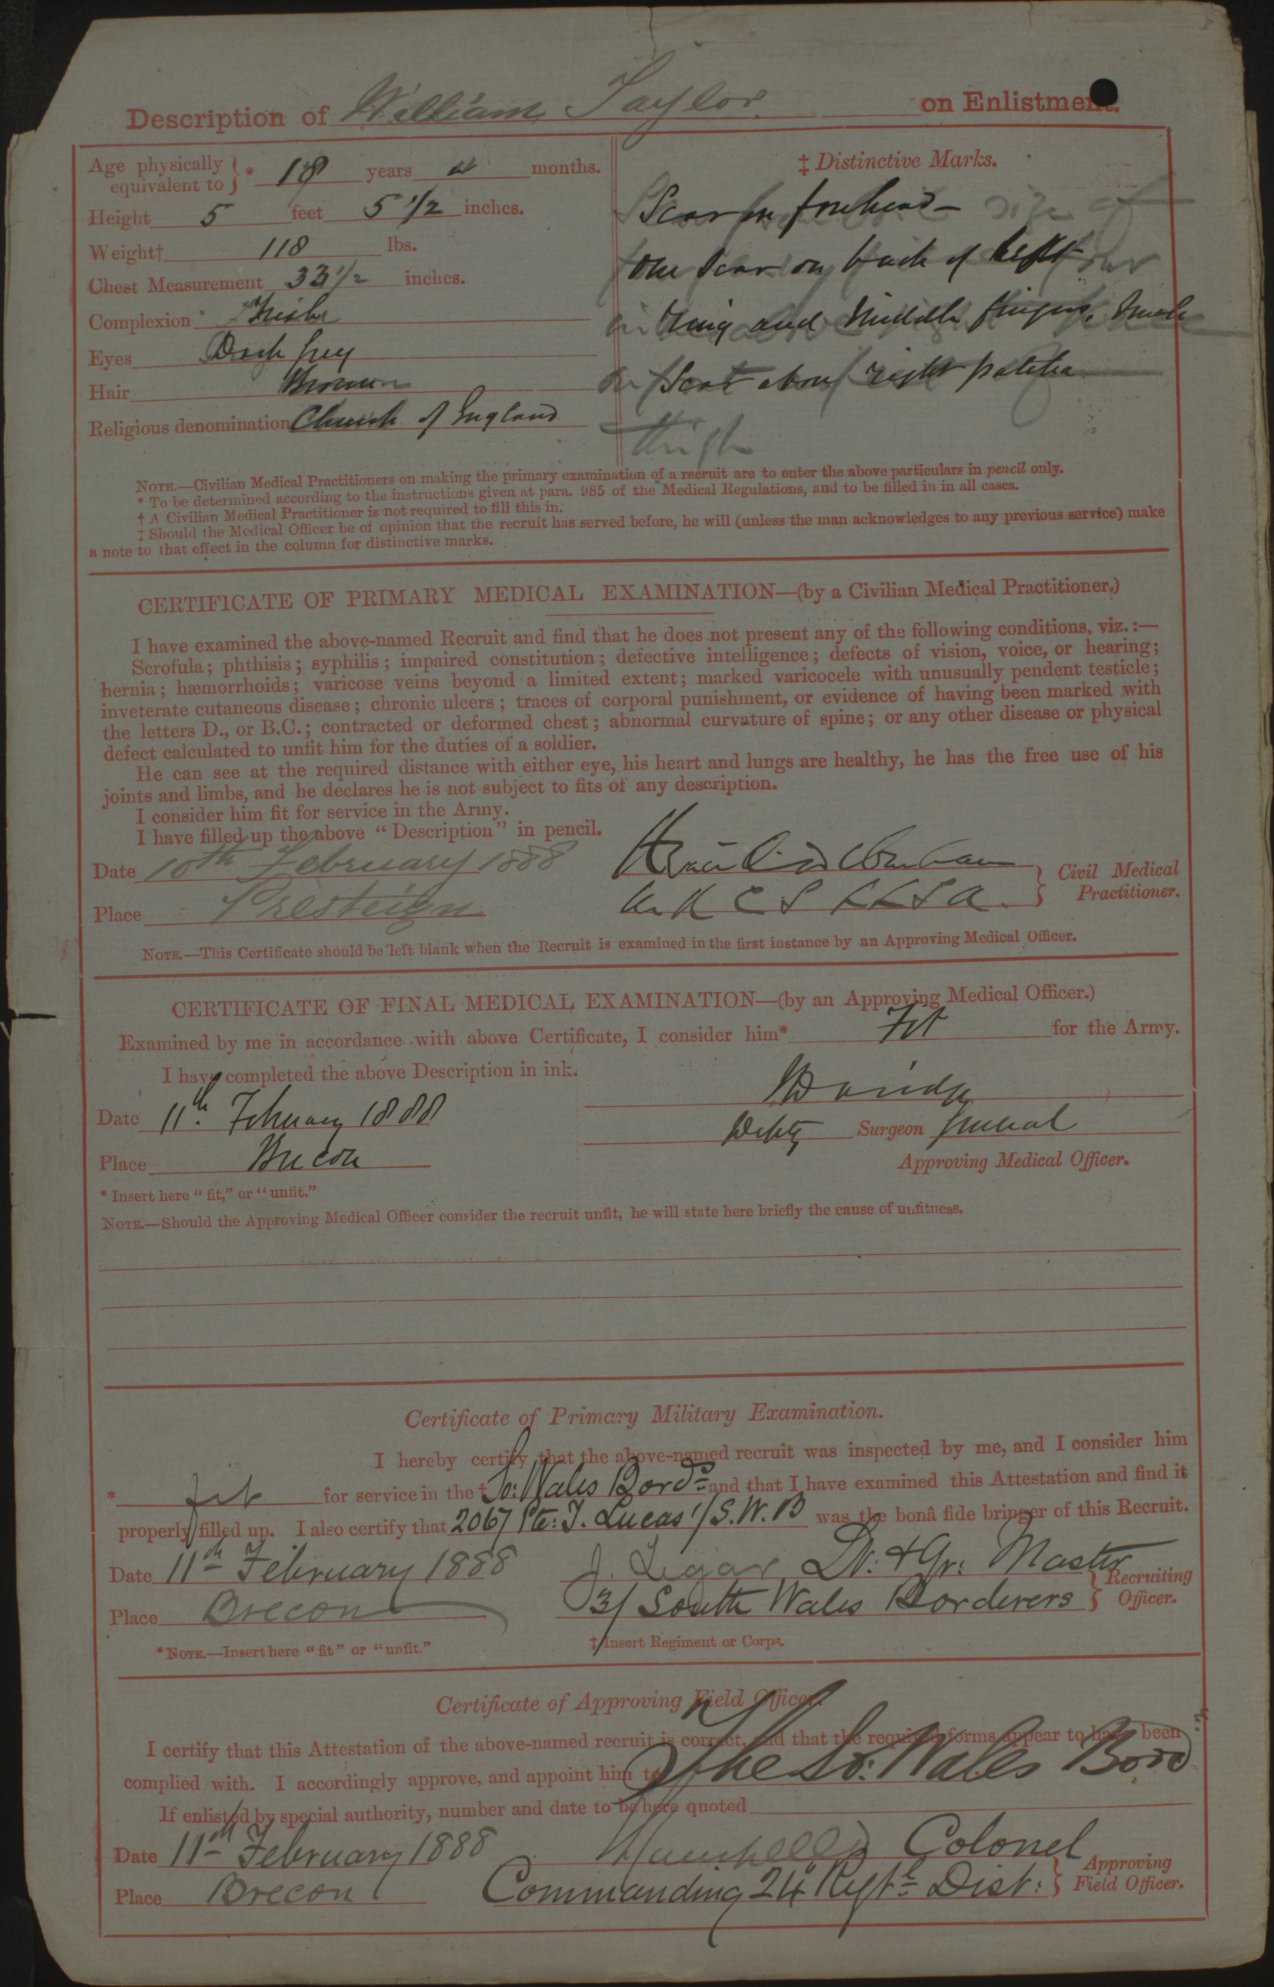 Description of William Taylor on Enlistment.
Age physically equivalent to } * 18 years 4 months.
Height 5 feet 5 1/2 inches.
Weight† 118 lbs.
Chest Measurement 33 1/2 inches.
Complexion Fresh
Eyes Dark grey
Hair Brown
Religious denomination Church of England
‡ Distinctive Marks.
Scar on forehead –
one scar on back of left
ring and middle fingers.
Scar above right patella
thigh
NOTE.—Civilian Medical Practitioners on making the primary examination of a recruit are to enter the above particulars in pencil only.
* To be determined according to the instructions given at para. 985 of the Medical Regulations, and to be filled in in all cases.
† A Civilian Medical Practitioner is not required to fill this in.
‡ Should the Medical Officer be of opinion that the recruit has served before, he will (unless the man acknowledges to any previous service) make
a note to that effect in the column for distinctive marks.
CERTIFICATE OF PRIMARY MEDICAL EXAMINATION—(by a Civilian Medical Practitioner.)
I have examined the above-named Recruit and find that he does not present any of the following conditions, viz.:—
Scrofula; phthisis; syphilis; impaired constitution; defective intelligence; defects of vision, voice, or hearing;
hernia; hæmorrhoids; varicose veins beyond a limited extent; marked varicocele with unusually pendent testicle;
inveterate cutaneous disease; chronic ulcers; traces of corporal punishment, or evidence of having been marked with
the letters D., or B.C.; contracted or deformed chest; abnormal curvature of spine; or any other disease or physical
defect calculated to unfit him for the duties of a soldier.
He can see at the required distance with either eye, his heart and lungs are healthy, he has the free use of his
joints and limbs, and he declares he is not subject to fits of any description.
I consider him fit for service in the Army.
I have filled up the above "Description" in pencil.
Date 10th February 1888
Place Presteign
Civil Medical Practitioner.
NOTE.—This Certificate should be left blank when the Recruit is examined in the first instance by an Approving Medical Officer.
CERTIFICATE OF FINAL MEDICAL EXAMINATION—(by an Approving Medical Officer.)
Examined by me in accordance with above Certificate, I consider him* Fit for the Army.
I have completed the above Description in ink.
Date 11th February 1888
Place Brecon
Deputy Surgeon General
Approving Medical Officer.
* Insert here "fit," or "unfit."
NOTE.—Should the Approving Medical Officer consider the recruit unfit, he will state here briefly the cause of unfitness.
Certificate of Primary Military Examination.
I hereby certify that the above-named recruit was inspected by me, and I consider him
* fit for service in the † So: Wales Bordrs and that I have examined this Attestation and find it
properly filled up. I also certify that 2067 Pte: T. Lucas 1/S.W.B was the bonâ fide bringer of this Recruit.
Date 11th February 1888
J. Legar Lt. & Qr: Master
Place Brecon
3/ South Wales Borderers } Recruiting Officer.
* NOTE.—Insert here "fit" or "unfit."
‡ Insert Regiment or Corps.
Certificate of Approving Field Officer.
I certify that this Attestation of the above-named recruit is correct, and that the required forms appear to have been
complied with. I accordingly approve, and appoint him to The So: Wales Bord
If enlisted by special authority, number and date to be here quoted
Date 11th February 1888
Colonel
Place Brecon
Commanding 24th Regtl Dist: } Approving Field Officer.